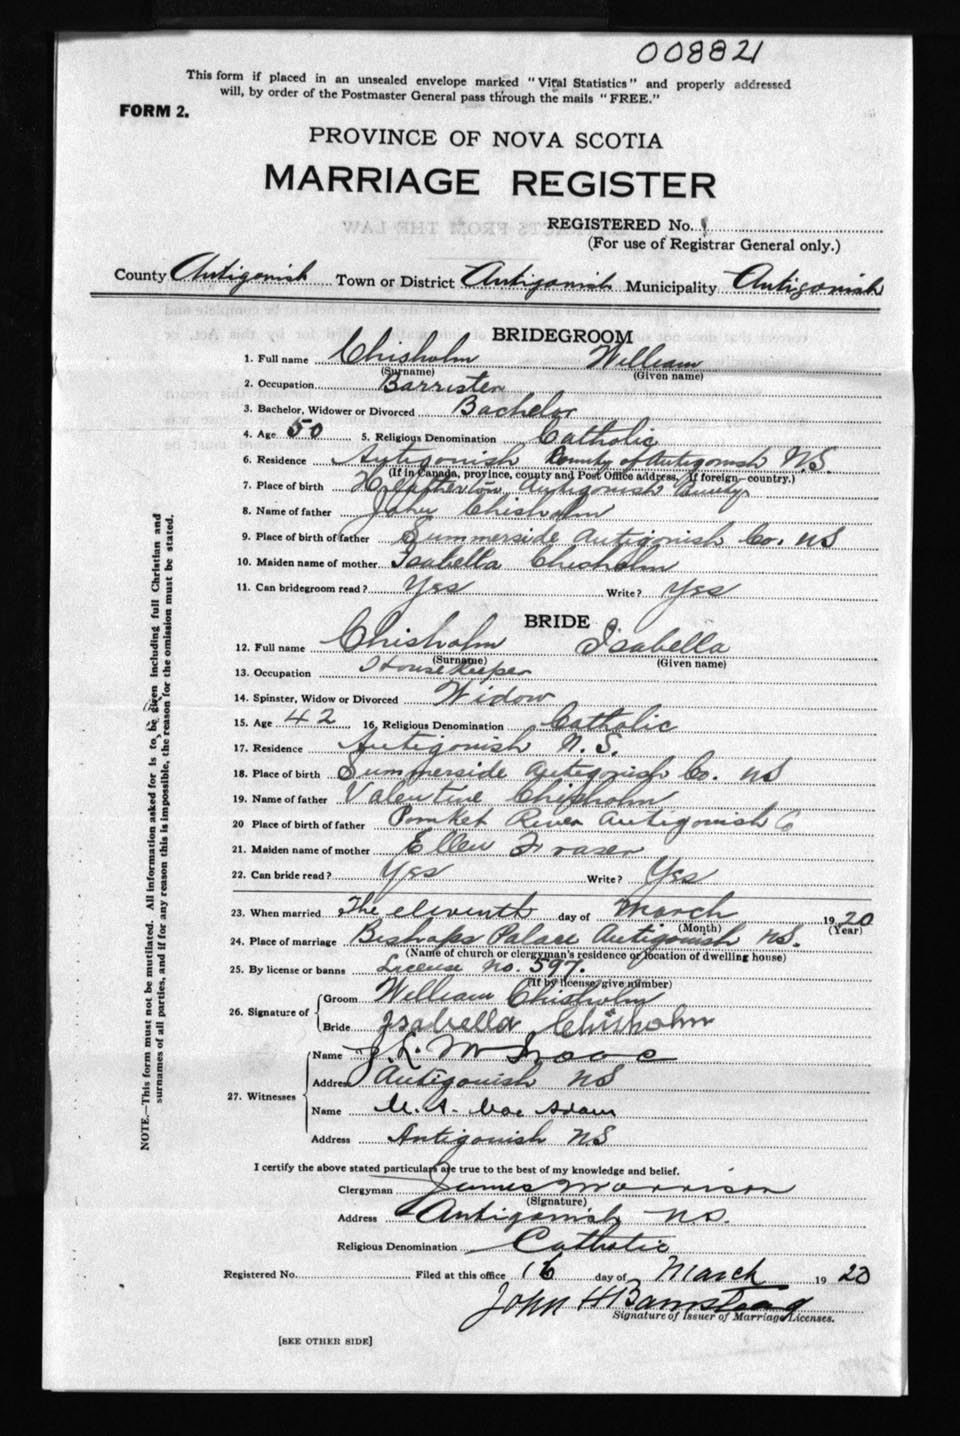 008821
This form if placed in an unsealed envelope marked "Vital Statistics" and properly addressed
will, by order of the Postmaster General pass through the mails "FREE."
FORM 2.
PROVINCE OF NOVA SCOTIA
MARRIAGE REGISTER
REGISTERED No.
(For use of Registrar General only.)
County Antigonish Town or District Antigonish Municipality Antigonish
BRIDEGROOM
1. Full name Chisholm William
(Surname) (Given name)
2. Occupation Barrister
3. Bachelor, Widower or Divorced Bachelor
4. Age 50 5. Religious Denomination Catholic
6. Residence Antigonish County of Antigonish N.S.
(If in Canada, province, county and Post Office address. If foreign—country.)
7. Place of birth Heatherton Antigonish County
8. Name of father John Chisholm
9. Place of birth of father Summerside Antigonish Co. NS
10. Maiden name of mother Isabella Chisholm
11. Can bridegroom read? Yes Write? Yes
BRIDE
12. Full name Chisholm Isabella
(Surname) (Given name)
13. Occupation Housekeeper
14. Spinster, Widow or Divorced Widow
15. Age 42 16. Religious Denomination Catholic
17. Residence Antigonish N.S.
18. Place of birth Summerside Antigonish Co. NS
19. Name of father Valentine Chisholm
20 Place of birth of father Pomket River Antigonish Co
21. Maiden name of mother Ellen Fraser
22. Can bride read? Yes Write? Yes
23. When married The eleventh day of March 1920
(Month) (Year)
24. Place of marriage Bishops Palace Antigonish NS.
(Name of church or clergyman's residence or location of dwelling house)
25. By license or banns License No. 597.
(If by license, give number)
26. Signature of Groom William Chisholm
Bride Isabella Chisholm
27. Witnesses
Name J. L. McIsaac
Address Antigonish NS
Name Mac Adam
Address Antigonish N.S
I certify the above stated particulars are true to the best of my knowledge and belief.
Clergyman James Morrison
(Signature)
Address Antigonish N.S.
Religious Denomination Catholic
Registered No. Filed at this office 16 day of March 1920
John H Bamstead
Signature of Issuer of Marriage Licenses.
[SEE OTHER SIDE]
NOTE.—This form must not be mutilated. All information asked for is to be given including full Christian and
surnames of all parties, and if for any reason this is impossible, the reason for the omission must be stated.